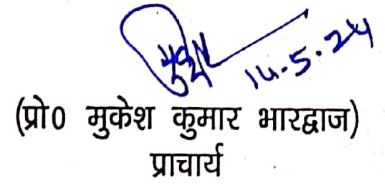 14.5.24
(प्रो0 मुकेश कुमार भारद्वाज)
प्राचार्य